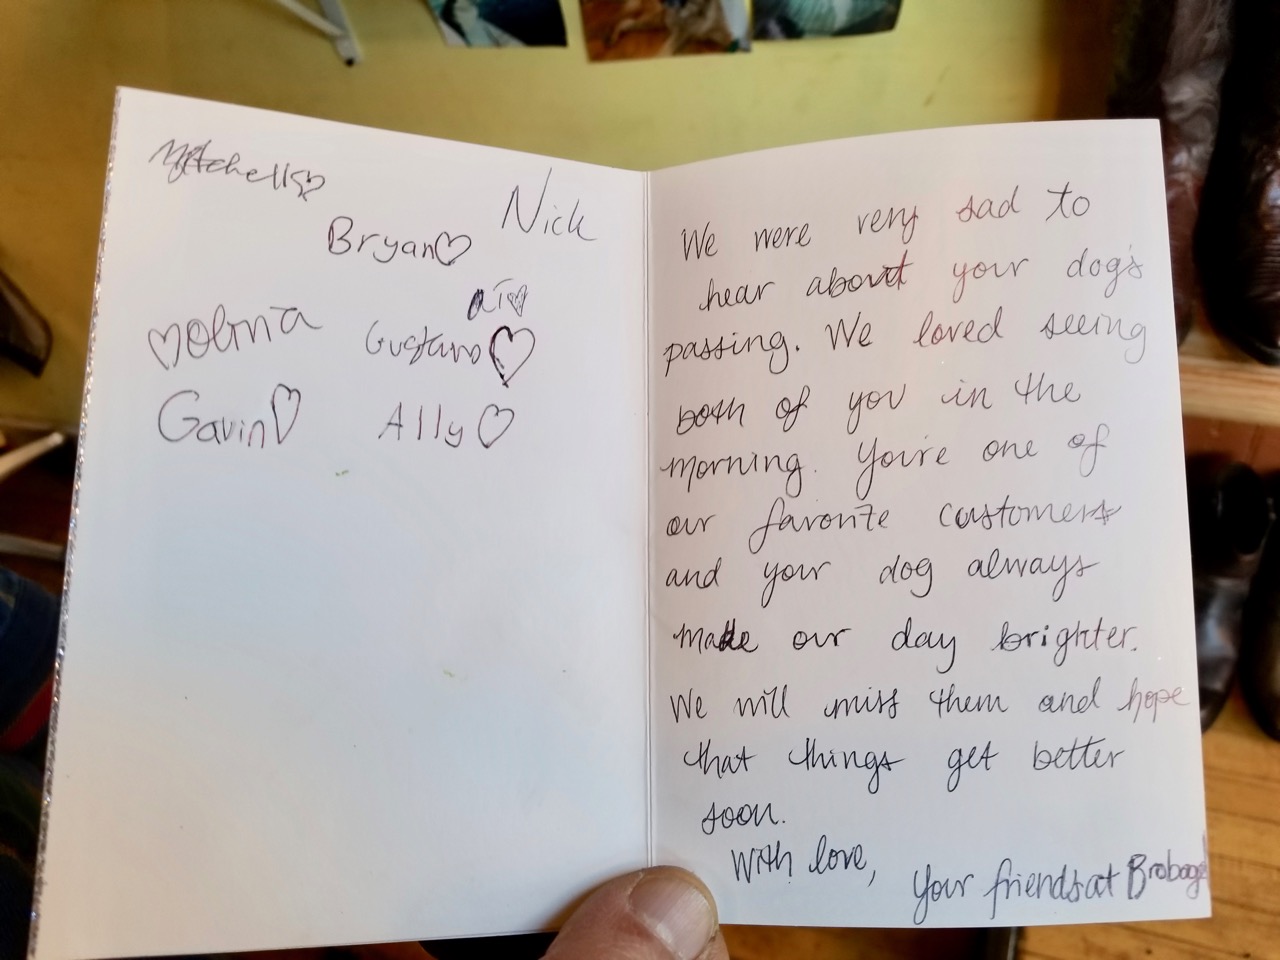 Mitchell
Nick
Bryan
Gustavo
Gavin
Ally
We were very sad to
hear about your dog's
passing. We loved seeing
both of you in the
morning. You're one of
our favorite customers
and your dog always
made our day brighter.
We will miss them and hope
that things get better
soon.
With love,
Your friends at Brobagel